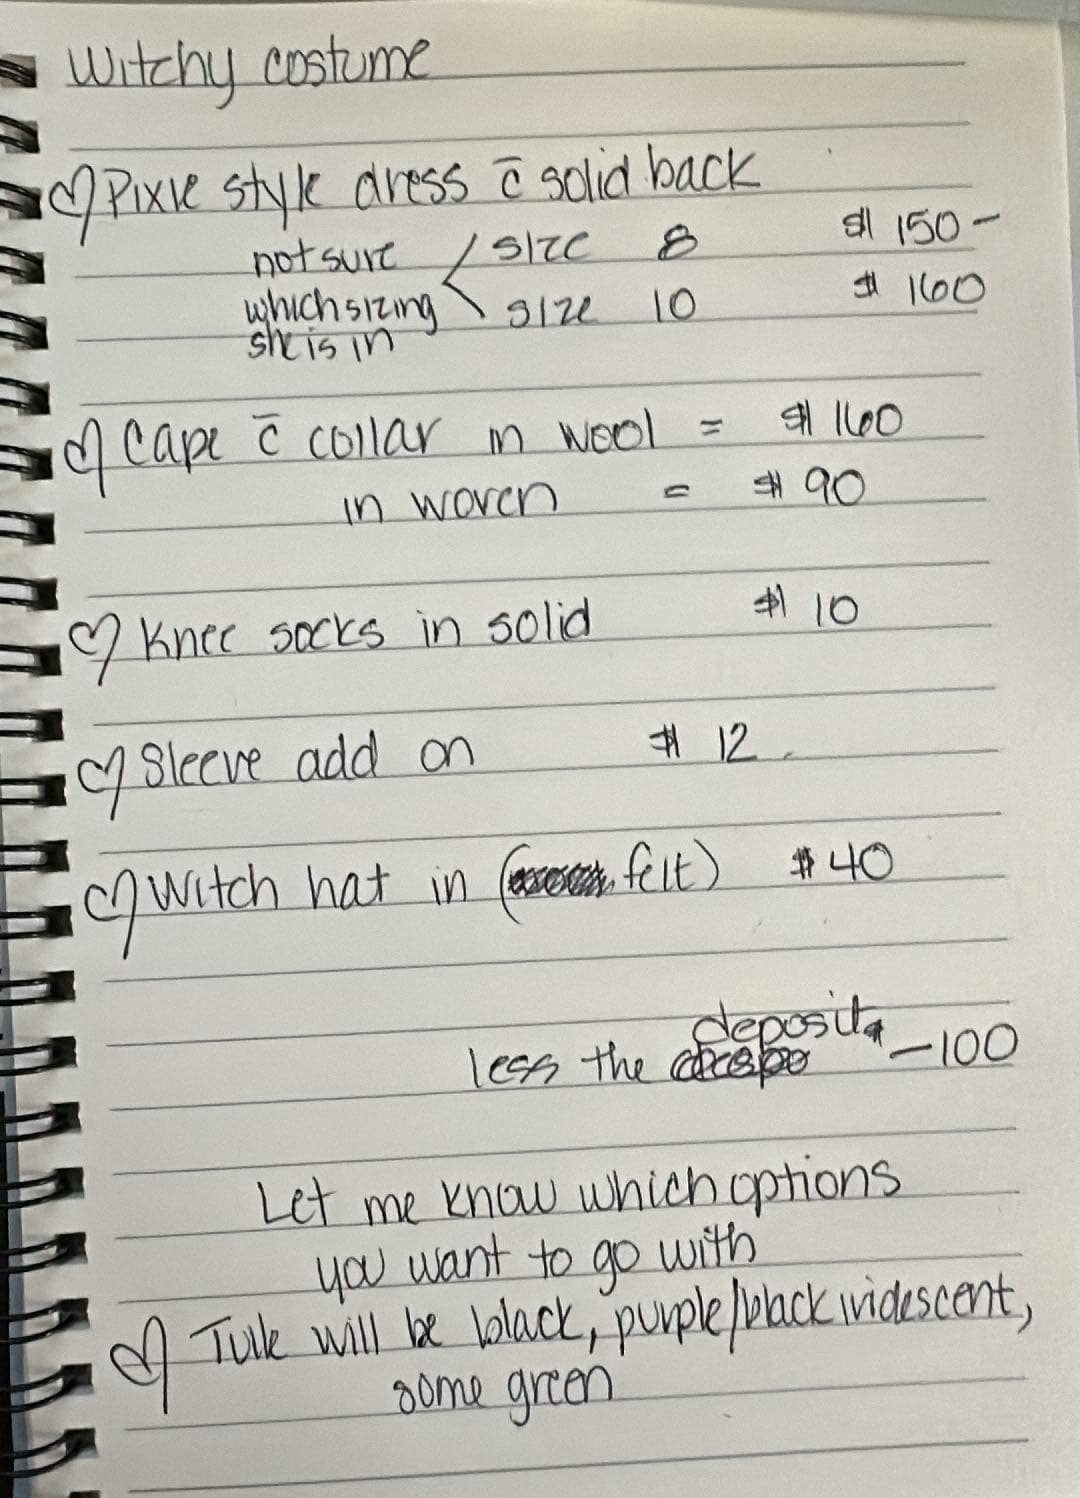 Witchy costume
Pixie style dress c̄ solid back
not sure size 8 $150-
which sizing size 10 $160
she is in
Cape c̄ collar in wool = $160
in woven = $90
Knee socks in solid $10
Sleeve add on $12
Witch hat in (felt) $40
deposit
less the -100
Let me know which options
you want to go with
Tulle will be black, purple/black iridescent,
some green